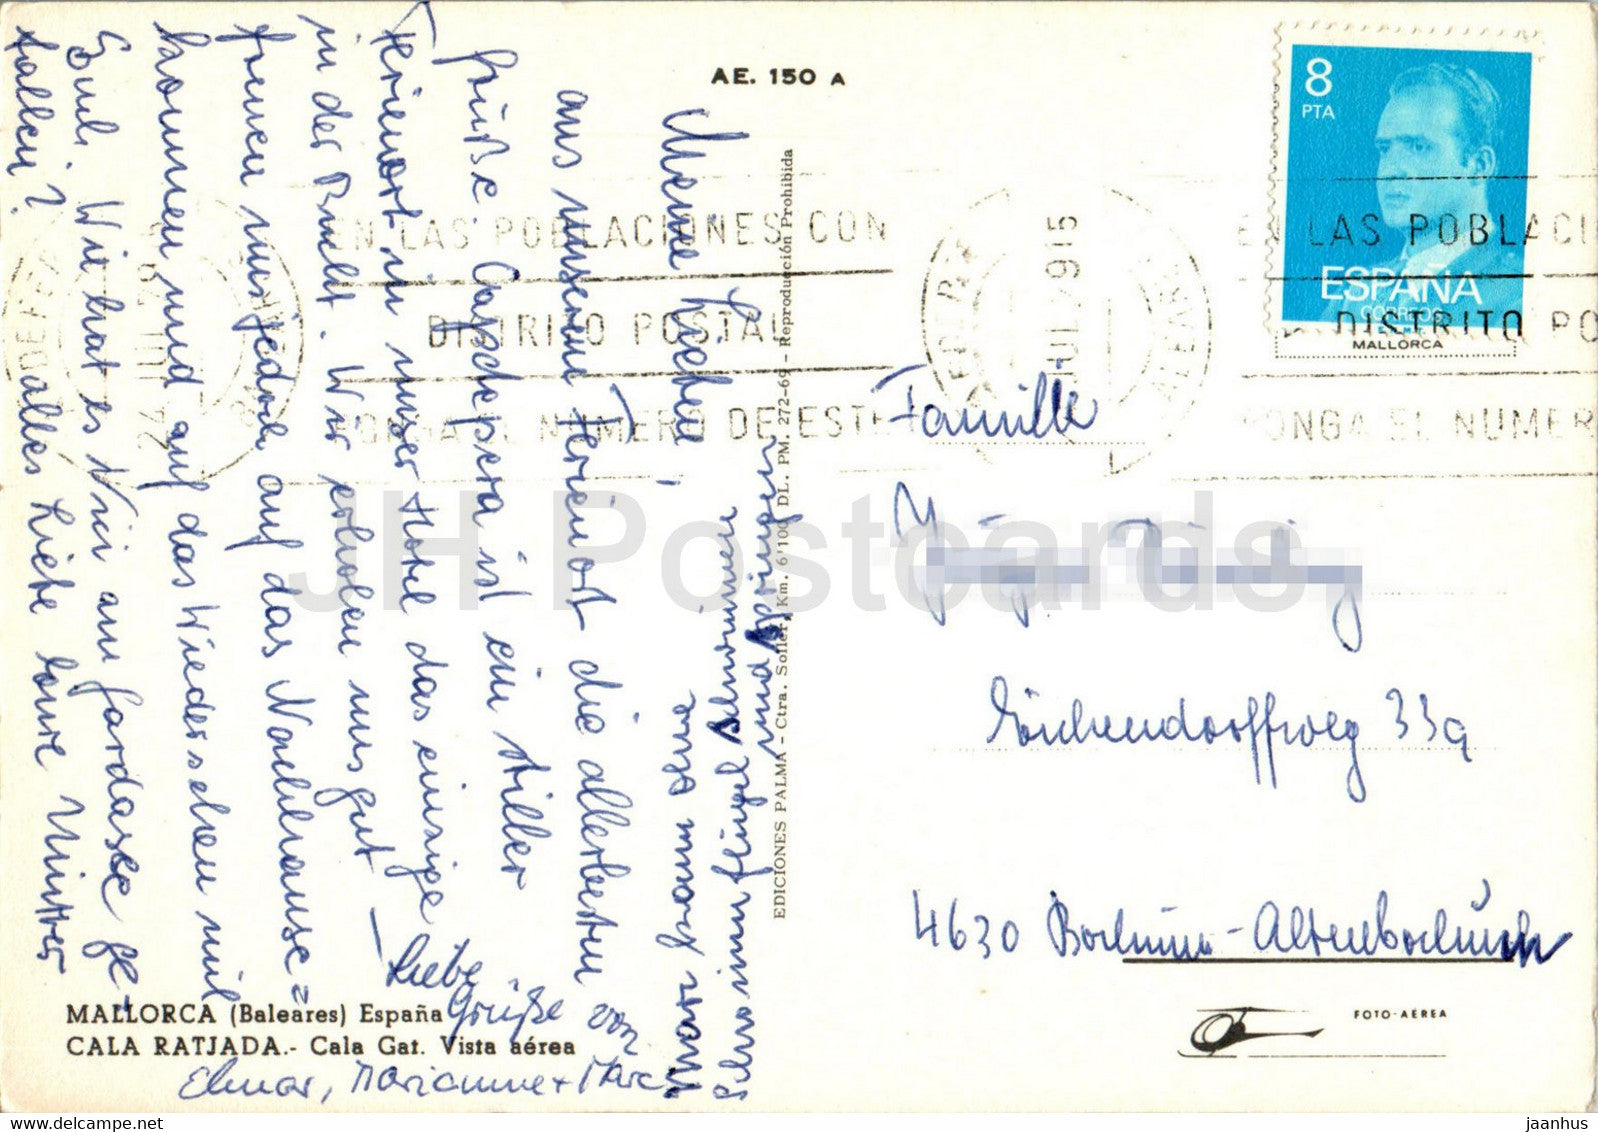 AE. 150 A
8
PTA
ESPAÑA
CORREOS
MALLORCA
EN LAS POBLACIONES CON
DISTRITO POSTAL
PONGA EL NUMERO DE ESTE
EN LAS POBLACI
DISTRITO PO
PONGA EL NUMER
Meine Lieben!
aus unserem Ferienort die allerbesten
Grüße. Capdepera ist ein stiller
Ferienort in unser Hotel das einzige
in der Bucht. Wir erholen uns gut
freuen uns jedoch auf das Nachhause=
kommen und auf das Wiedersehen mit
Euch. Wie hat es am Gardasee ge-
fallen? alles Liebe Eure Mutter
Liebe
Grüße von
Elmar, Marianne + Marc
Marc ganz ohne
Schwimmflügel schwimmen
und springen
EDICIONES PALMA - Ctra. Soller, Km. 6'100 DL. PM. 272-69 - Reproducción Prohibida
Familie
Eichendorffweg 33a
4630 Bochum-Altenbochum
MALLORCA (Baleares) España
CALA RATJADA.- Cala Gat. Vista aérea
FOTO-AEREA
JH Postcards
jaanhus ©www.delcampe.net